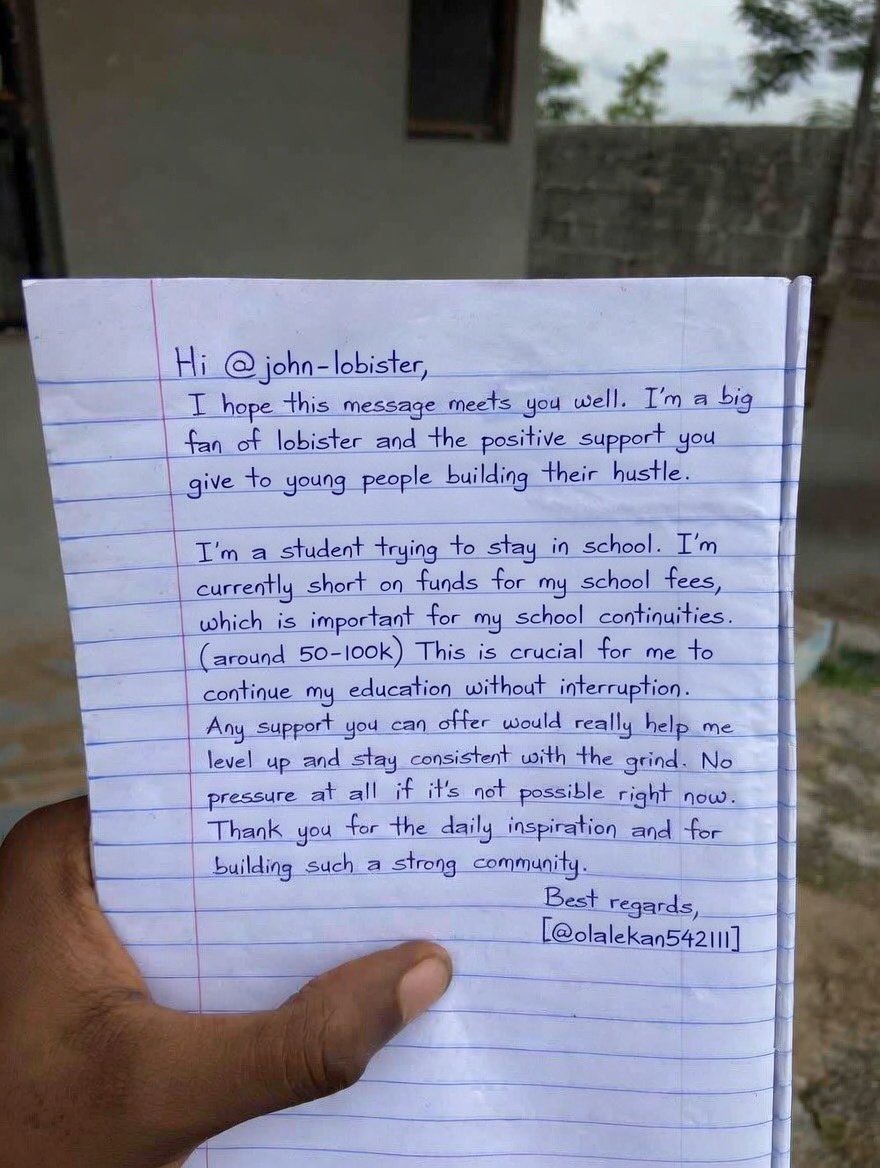 Hi @john-lobister,
I hope this message meets you well. I'm a big
fan of lobister and the positive support you
give to young people building their hustle.
I'm a student trying to stay in school. I'm
currently short on funds for my school fees,
which is important for my school continuities.
(around 50-100k) This is crucial for me to
continue my education without interruption.
Any support you can offer would really help me
level up and stay consistent with the grind. No
pressure at all if it's not possible right now.
Thank you for the daily inspiration and for
building such a strong community.
Best regards,
[@olalekan542111]